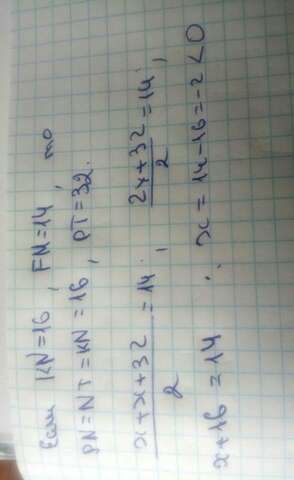 Если KN=16, FN=14, то
PN=NT=KN=16, PT=32.
(x+x+32)/2 = 14; (2x+32)/2 = 14;
x+16=14; x=14-16=-2<0